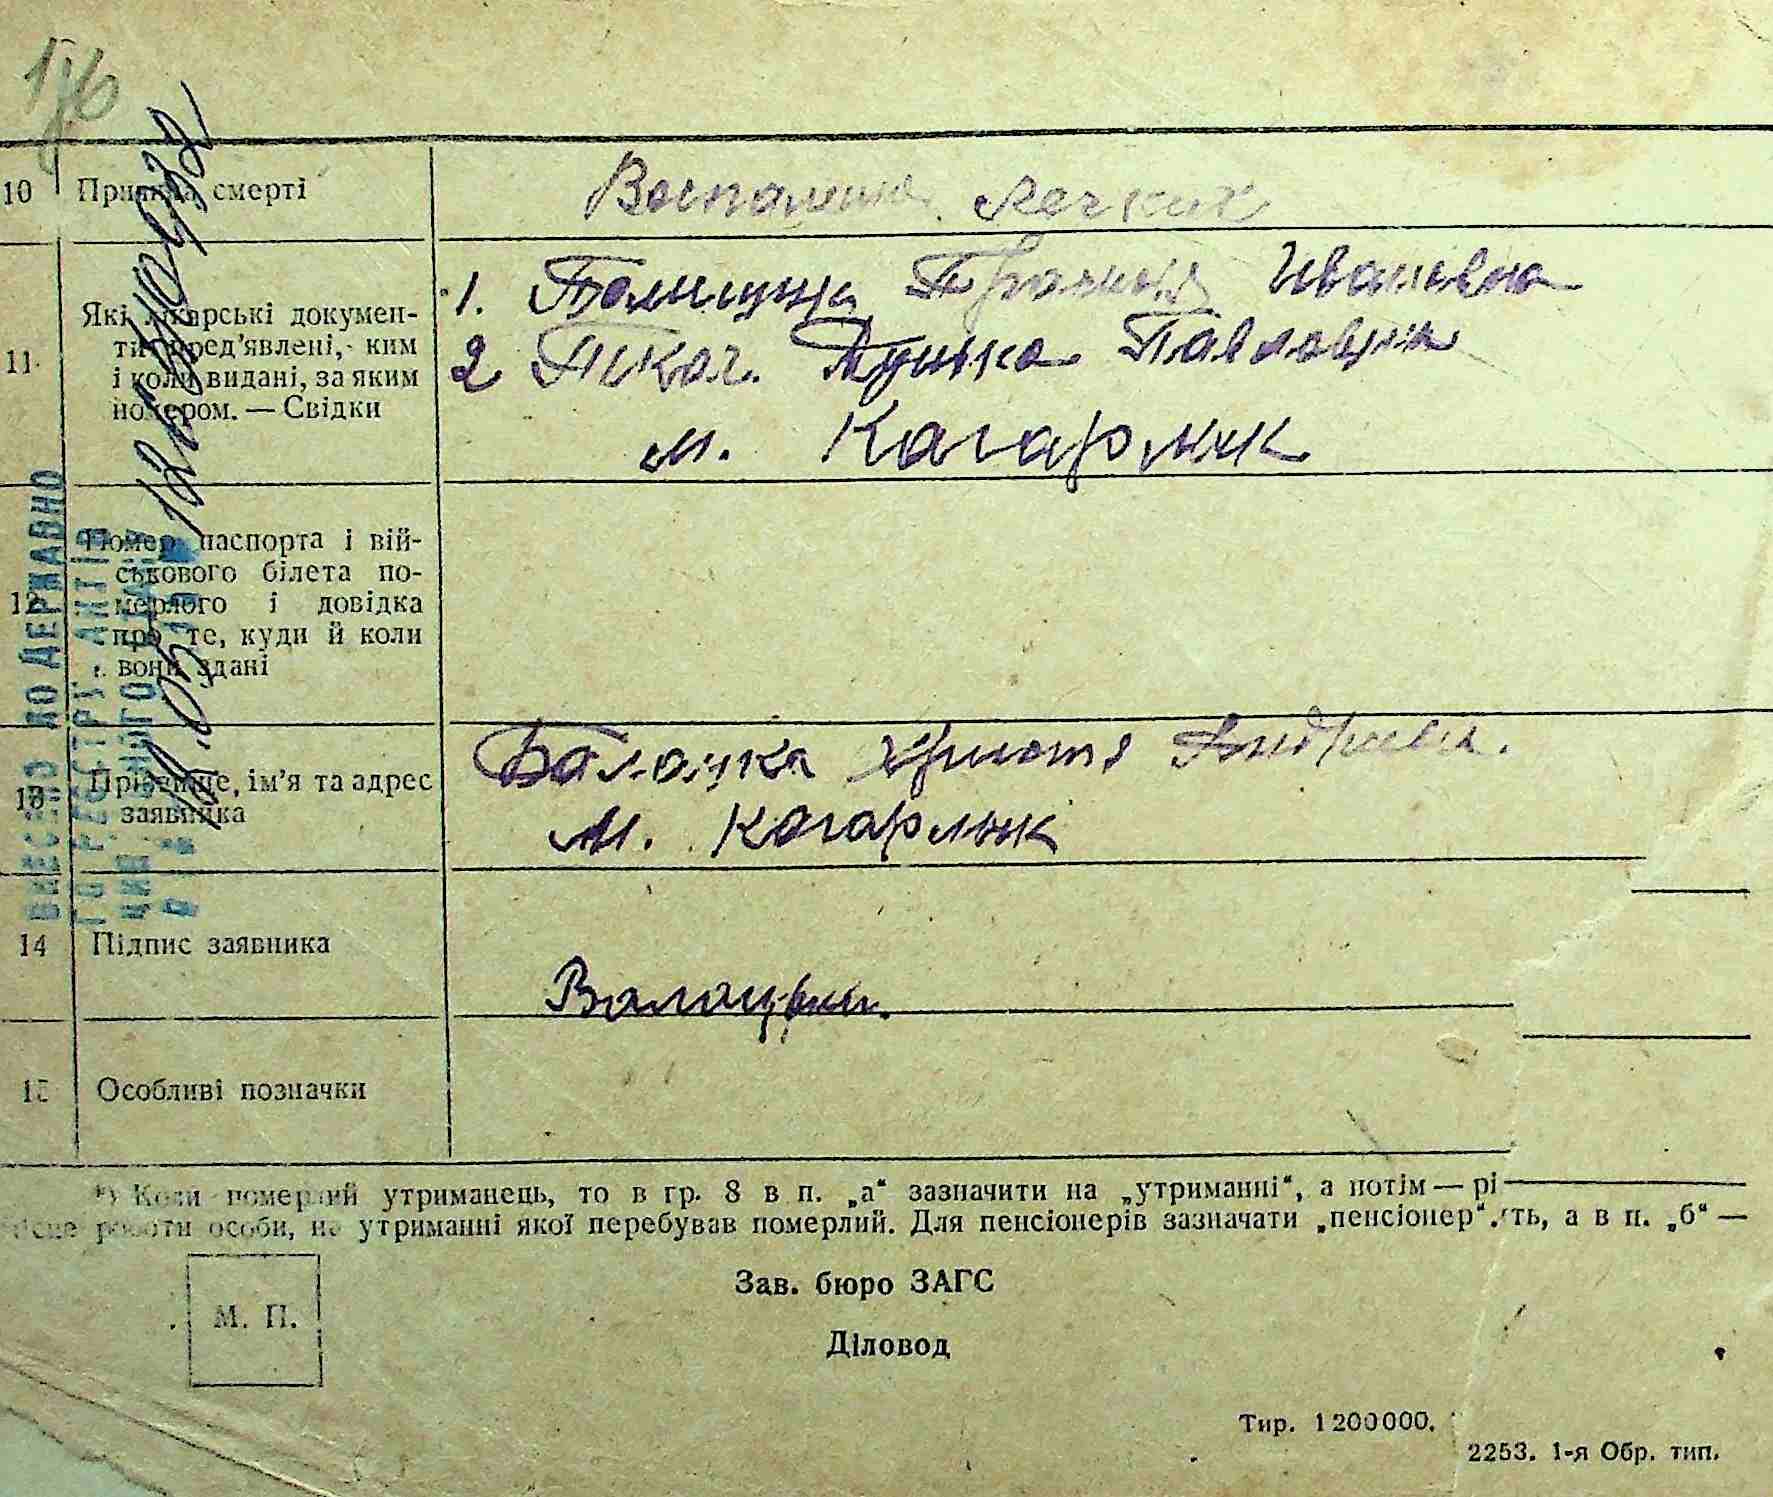 10 Причина смерті
Воспаление легких
11 Які лікарські докумен-
ти пред'явлені, ким
і коли видані, за яким
номером. — Свідки
1.
Ивановна
2 Ткач. Павловна
м. Кагарлик
12 Номер паспорта і вій-
ськового білета по-
мерлого і довідка
про те, куди й коли
вони здані
13 Прізвище, ім'я та адрес
заявника
Балацка Христя
м. Кагарлык
14 Підпис заявника
15 Особливі позначки
*) Коли померлий утриманець, то в гр. 8 в п. „а“ зазначити на „утриманні“, а потім — рі
місце роботи особи, на утриманні якої перебував померлий. Для пенсіонерів зазначати „пенсіонер“. ть, а в п. „б“ —
М. П.
Зав. бюро ЗАГС
Діловод
Тир. 1 200 000.
2253. 1-я Обр. тип.
ВНЕСЕНО ДО ДЕРЖАВНО
ГО РЕЄСТРУ АКТІВ